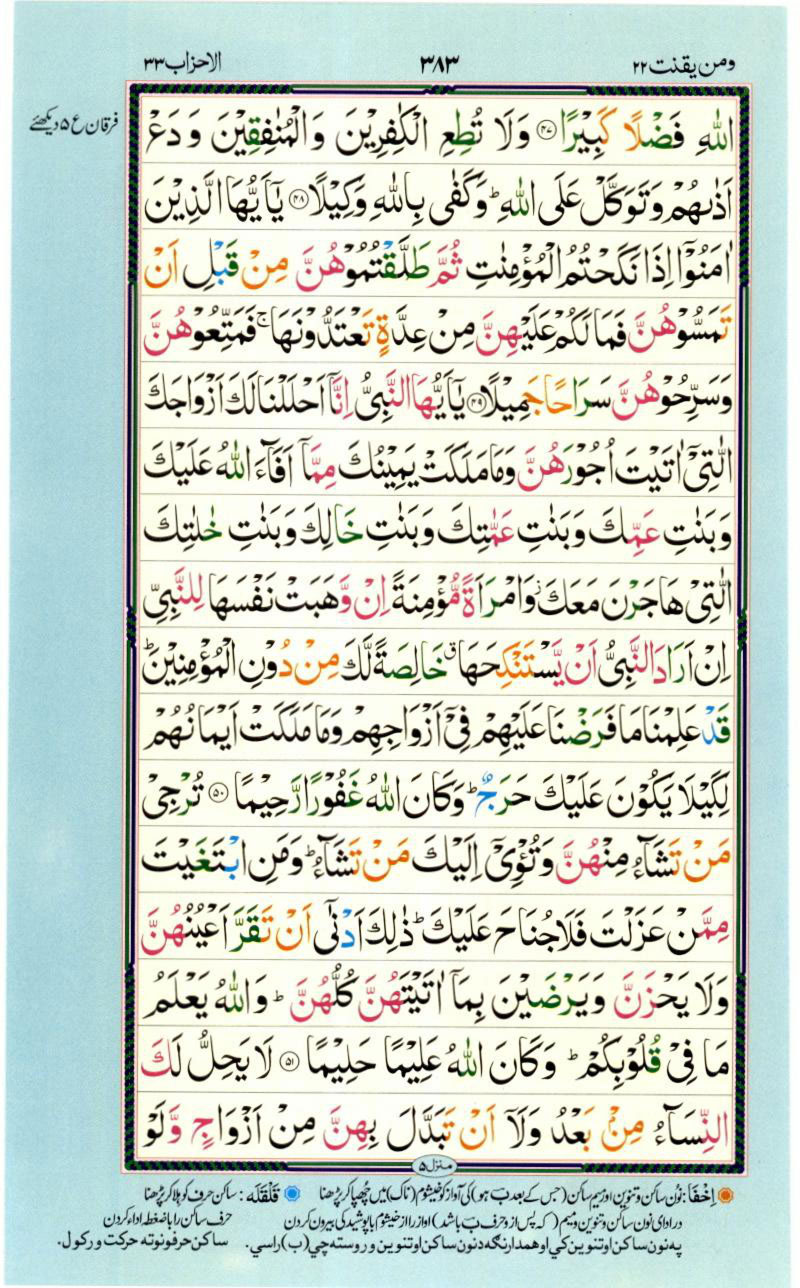 ومن یقنت ۲۲
۳۸۳
الاحزاب ۳۳
فرقان ع ۵ دیکھئے
اللّٰهِ فَضْلًا كَبِيْرًا ﴿۴۷﴾ وَلَا تُطِعِ الْكٰفِرِيْنَ وَالْمُنٰفِقِيْنَ وَدَعْ
اَذٰىهُمْ وَتَوَكَّلْ عَلَى اللّٰهِ ؕ وَكَفٰى بِاللّٰهِ وَكِيْلًا ﴿۴۸﴾ يٰۤاَيُّهَا الَّذِيْنَ
اٰمَنُوْۤا اِذَا نَكَحْتُمُ الْمُؤْمِنٰتِ ثُمَّ طَلَّقْتُمُوْهُنَّ مِنْ قَبْلِ اَنْ
تَمَسُّوْهُنَّ فَمَا لَكُمْ عَلَيْهِنَّ مِنْ عِدَّةٍ تَعْتَدُّوْنَهَا ۚ فَمَتِّعُوْهُنَّ
وَسَرِّحُوْهُنَّ سَرَاحًا جَمِيْلًا ﴿۴۹﴾ يٰۤاَيُّهَا النَّبِيُّ اِنَّاۤ اَحْلَلْنَا لَكَ اَزْوَاجَكَ
الّٰتِيْۤ اٰتَيْتَ اُجُوْرَهُنَّ وَمَا مَلَكَتْ يَمِيْنُكَ مِمَّاۤ اَفَآءَ اللّٰهُ عَلَيْكَ
وَبَنٰتِ عَمِّكَ وَبَنٰتِ عَمّٰتِكَ وَبَنٰتِ خَالِكَ وَبَنٰتِ خٰلٰتِكَ
الّٰتِيْ هَاجَرْنَ مَعَكَ ؗ وَامْرَاَةً مُّؤْمِنَةً اِنْ وَّهَبَتْ نَفْسَهَا لِلنَّبِيِّ
اِنْ اَرَادَ النَّبِيُّ اَنْ يَّسْتَنْكِحَهَا ۗ خَالِصَةً لَّكَ مِنْ دُوْنِ الْمُؤْمِنِيْنَ ؕ
قَدْ عَلِمْنَا مَا فَرَضْنَا عَلَيْهِمْ فِيْۤ اَزْوَاجِهِمْ وَمَا مَلَكَتْ اَيْمَانُهُمْ
لِكَيْلَا يَكُوْنَ عَلَيْكَ حَرَجٌ ؕ وَكَانَ اللّٰهُ غَفُوْرًا رَّحِيْمًا ﴿۵۰﴾ تُرْجِيْ
مَنْ تَشَآءُ مِنْهُنَّ وَتُـْٔوِيْۤ اِلَيْكَ مَنْ تَشَآءُ ؕ وَمَنِ ابْتَغَيْتَ
مِمَّنْ عَزَلْتَ فَلَا جُنَاحَ عَلَيْكَ ؕ ذٰلِكَ اَدْنٰۤى اَنْ تَقَرَّ اَعْيُنُهُنَّ
وَلَا يَحْزَنَّ وَيَرْضَيْنَ بِمَاۤ اٰتَيْتَهُنَّ كُلُّهُنَّ ؕ وَاللّٰهُ يَعْلَمُ
مَا فِيْ قُلُوْبِكُمْ ؕ وَكَانَ اللّٰهُ عَلِيْمًا حَلِيْمًا ﴿۵۱﴾ لَا يَحِلُّ لَكَ
النِّسَآءُ مِنْۢ بَعْدُ وَلَاۤ اَنْ تَبَدَّلَ بِهِنَّ مِنْ اَزْوَاجٍ وَّلَوْ
منزل ۵
اِخْفَا: نون ساکن و تنوین اور میم ساکن (جس کے بعد ب ہو) کی آواز کو خیشوم (ناک) میں چھپا کر پڑھنا قَلْقَلَه: ساکن حرف کو ہلا کر پڑھنا
در ادای نون ساکن و تنوین و میم (که پس از و حرف ب باشد) آواز را از خیشوم با پوشیدگی بیرون کردن حرف ساکن را با ضغطه اداء کردن
په نون ساکن او تنوین کي او همدارنګه د نون ساکن او تنوین وروسته چي (ب) راسي. ساکن حرفو نوته حرکت ورکول.